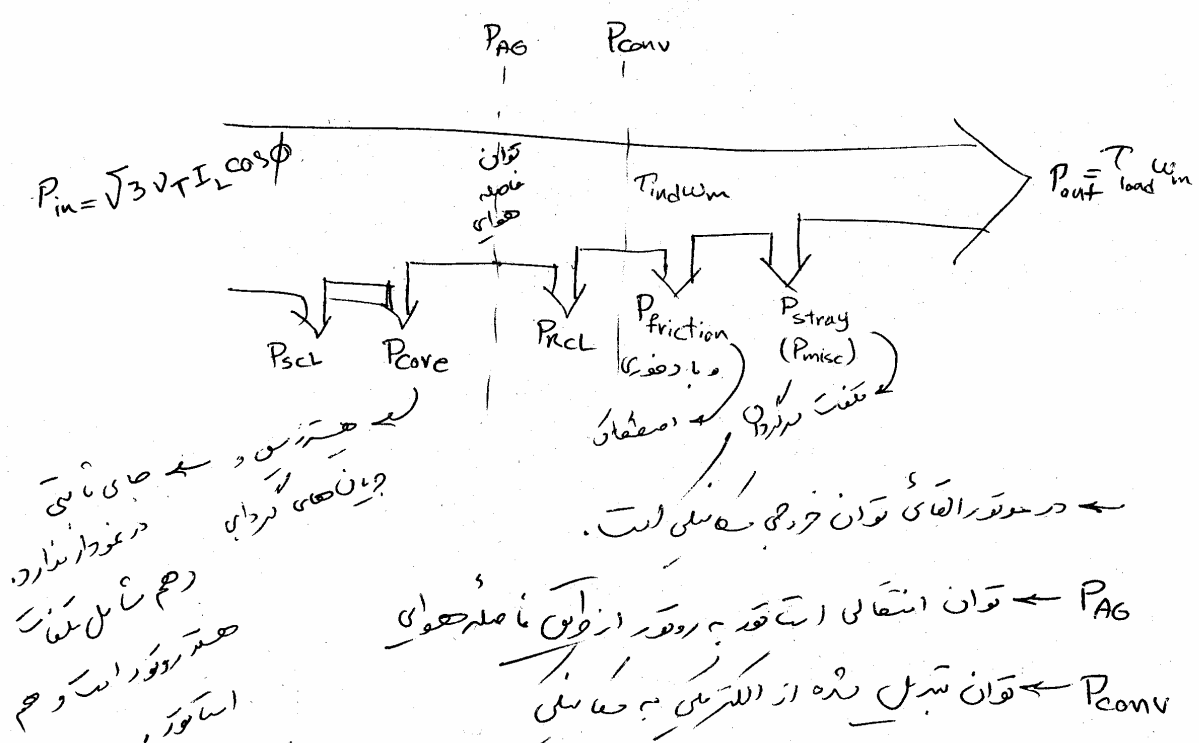 P_AG P_conv
P_in = √3 V_T I_L cosφ
توان
فاصله
هوایی
τ_ind ω_m
P_out = τ_load ω_m
P_SCL
P_core
P_RCL
P_friction
و بادخوری
اصطکاک
P_stray
(P_misc)
تلفات سرگردان
هیسترزیس و
جریان‌های گردابی
جای ثابتی
در نمودار ندارد.
و هم شامل تلفات
هسته روتور است و هم
استاتور.
← در موتور القائی توان خروجی مکانیکی است.
P_AG ← توان انتقالی استاتور به روتور از طریق فاصله هوایی
P_conv ← توان تبدیل شده از الکتریکی به مکانیکی